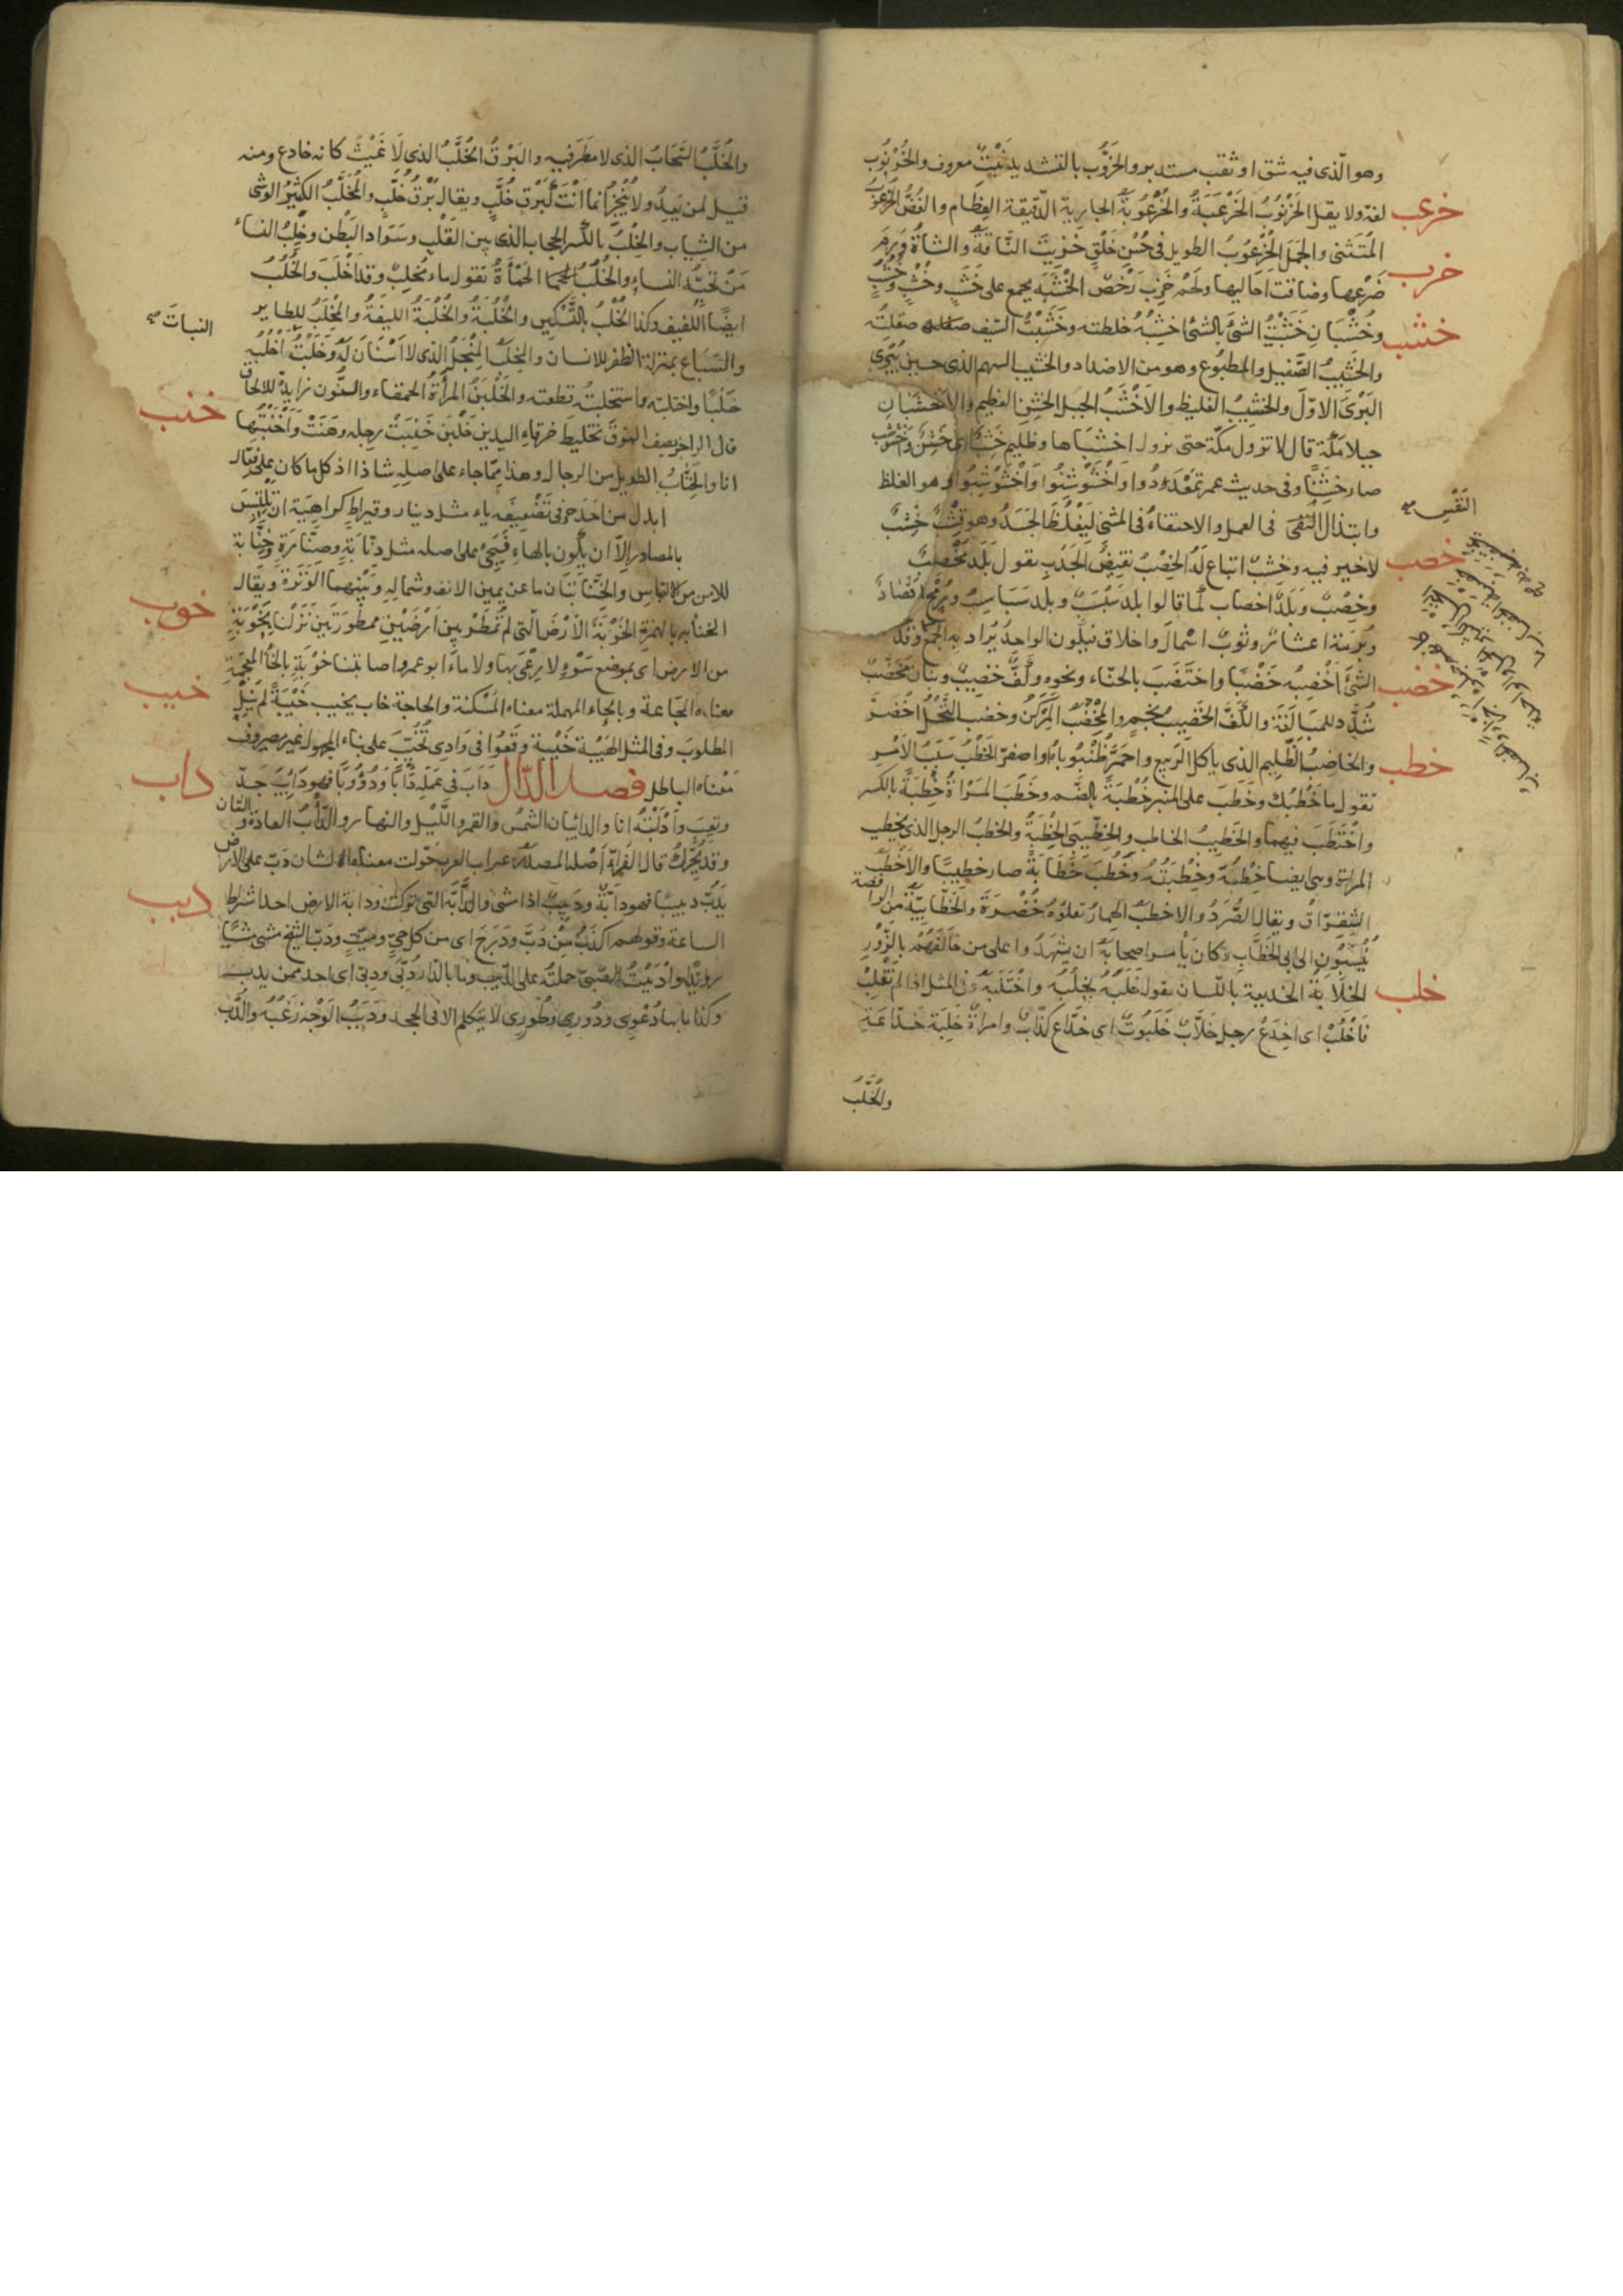 وهو الّذى فيه شق او ثقب مستدير والخَرُّوب بالتشديد نَبْتٌ معروف والخُرْنُوب
خرعب
لغة ولا يقل الخَرْنُوبُ الخَرْعَبَةُ والخُرْعُوبَةُ الجارية الدّقيقة العِظَام والغُصْنُ الخُرْعُوبُ
المُتَثَنى والجَمَل الخُرْعُوبُ الطويل فى حُسْنِ خَلْقٍ خَزِبَتْ النَّاقَةُ والشاةُ وَرِمَ
خزب
ضَرْعها وضاقت احَاليها ولحم خَزِب رَخْص الخَشَبَة يجمع على خَشَبٍ وخُشْبٍ وخُشُبٍ
خشب
وخُشْبَانٍ خَشَبْتُ الشئ بالشئ اخشِبُه خلطته وخَشَبْتُ السّيف صقلتُه
والخَشِيبُ الصَّقيل والمطبُوع وهو من الاضداد والخشيب السهم الذى حين يُبْرى
البَرْىَ الاوّلَ والخشيبُ الغليظ والاَخْشَبُ الجبل الخشِن العظيم والاَخْشَبَانِ
جبلا مكّة قال لا تزول مكّة حتى يزول اخشبَاها وظليم خَشِبٌ اى خشِنٌ واخْشَوْشَبَ
صار خَشِنًا وفى حديث عمر تَمَعْدَدُوا وَاخْشَوْشِنُوا وَاخْشَوْشِبُوا وهو الغلظ
النَفْسِ صح
وابتذال فى العمل والاحتفاءُ فى المشى لِيَغْلُظَ الجَسَدُ وهو قِشْبٌ خِشْبٌ
خصب
لا خير فيه وخشب اتباع لهُ الخِصْبُ نقيضُ الجَدْبِ يقول بَلَد مُخْصِبٌ
وخِصْبٌ وبَلَدٌ اخصاب كما قالوا بلد سَبْسَبٌ وبلد سَبَاسِبُ ورُمْحٌ اقصادٌ
وبُرْمَة اعشار وثوبٌ اسْمالٌ واخلاق فيكون الواحد يُرَاد بِه الجمع وقد
خضب
الشئ اخضِبُه خَضْبًا واختَضَبَ بالحنّاء ونحوه وكَفٌّ خضيبٌ وبنَان مُخَضَّبٌ
شُدِّد للمبَالَغَة والكَفُّ الخَضيبُ نجم والمِخْضَبُ المِرْكَنُ وخضب النَّخْلُ اخضَرَّ
والخاضِبُ الظَّلِيم الذى ياكل الرّبيع واحمَرَّ ظُنْبُوبَاه او اصفرّا الخَطْبُ سَبَبُ الاَمْرِ
خطب
تقول ما خَطْبُكَ وخَطَبَ على المنبر خُطْبَةً بالضّم وخَطَبَ المَرْاةَ خِطْبَةً بالكسر
واخْتَطَبَ فيهما والخَطِيبُ الخاطب والخِطِّيبَى الخِطْبَةُ والخطبُ الرجل الذى يخطب
المراة وهى ايضا خِطْبُهُ وخِطْبَتُهُ وخَطُبَ خَطَابَةً صار خطيبًا والاَخْطَبُ
الشِقِرّاقُ ويقال الصُّرَدُ والاخطبُ الحِمَارُ تعلُوهُ خُضْرَةٌ والخَطَّابِيَّة مِن الرافضة
يُنْسَبُون الى ابى الخَطَّابِ وكان يأمر اصحابَهُ ان يشهَدُوا على من خالفهُم بالزُّورِ
خلب
الخِلَابَة الخديعة باللّسان تقول خَلَبَهُ يخلُبُه واختَلَبَه وفى المثل اذا لم تَغْلِبْ
فَاخْلُبْ اى اخدَعْ رجل خَلَّابٌ خَلَبُوتٌ اى خدّاع كذّابٌ وامراة خلِبَة خدّاعَة
والخُلَّبُ
والخُلَّبُ السَّحَابُ الذى لا مطرَ فيه والبَرْقُ الخُلَّبُ الذى لَا غَيْثَ كانه خادع ومنه
قيل لمن يَعِدُ ولا يُنْجِزُ انما اَنْتَ كَبَرْقِ خُلَّبٍ ويقال بَرْقُ خُلَّبٍ والمُخَلَّبُ الكثيْرُ الوشى
من الثياب والخِلْبُ بالكسر الحجاب الذى بين القَلْبِ وسَوَاد البَطْن وخِلْبُ النساء
مَنْ تحبُّه النساء والخُلُب الحَمْاَةُ تقول ماء مُخلِبٌ وقد اَخْلَبَ والخُلُبُ
ايضًا اللّيف وكذا الخُلْبُ بالتّسكين والخُلْبَة والخُلُبَةُ الليفَةُ والمِخْلَبُ للطاير
النباتَ صح
والسّبَاع بمنزلة الظفر للانسان والمِخلَب المِنْجَلُ الذى لا اَسْنَان لَهُ وخَلَبْتُ اَخْلُبُه
خَلْبًا واختلبته واستخلبتُه قطعته والخَلْبَنُ المرأَةُ الحمقاء والنّون زايدة للالحاق
خنب
قال الراجز يصف النوق تخليط خرقاءِ اليدينِ خَلْبَن خَنِبَتْ رِجله وهَنَتْ وَاَخْنَبْتُها
انا والخِنّابُ الطويل من الرجال وهذا مِمّا جاء على اصلِه شاذا اذ كل ما كان على فِعّالٍ
ابدل من اَحَد حرفى تَضْعِيفِه ياء مثل دينار وقيراط كراهِيَة ان يلتبَسَ
بالمصادر اِلّا ان يكُون بالهاء فَيجئ على اصله مثل دنّابَةٍ وصنّارَةٍ وخِنّابة
للامن من الالتباس والخِنَّابَتَان ما عن يمين الانف وشماله وبَيْنهما الوَتَرَة ويقال
خوب
الخنأبه بالهمزة الخَوْبَةُ الاَرْضَ الّتى لم تُمْطَرْ بين اَرْضَيْنِ ممطُورَتَيْن نَزَلنا بخَوْبَةٍ
من الارض اى بموضع سَوْءٍ لا رِعْىَ بها ولا ماءَ ابو عمرو اصابتنا خَوْبَة بالخاء المعجمة
خيب
معناه المجَاعة وبالحاء المهملة معناه المَسْكنة والحاجة خاب يخيب خَيْبَةً لم يَنَلْ
المطلوبَ وفى المثل الهَيْبَة خَيْبة وقَعُوا فى وَادِى تُخُيِّبَ على بناء المجهول غير مصروف
مَعْناه الباطل فصل الدّال دَاَبَ فى عَمَلِه دَاْبًا ودُؤُوبًا فهو دَائِبٌ جَدّ
داب
وتَعِبَ واَدْاَبْتُه انا والدائبان الشمسُ والقمر واللّيل والنهار والدَّاْبُ العادَة والشان
وقد يُحَرّكُ قال الفرّاء اَصْله
دبب
يَدِبّ دبيبًا فهو دابّة ودَبيبٌ اذا مشى والدابّة التى تركب ودابة الارض احد اشراط
الساعة وقولهم اكذَبُ مَنْ دَبَّ ودَرَجَ اى من كل حىٍّ وميّتٍ ودَبّ الشّيخ مشى مشيًا
رويدًا وادْبَبْتُ الصّبى حملتُه على الدّبيب وما بالدار دُبّى ودِبّى اى احد ممن يدب
وكذا ما بها دُعْوِى ودُورِى وطُورِى لا يتكلم الا فى الجحد ودَبَبُ الوَجْه زَغَبُه والدُّب